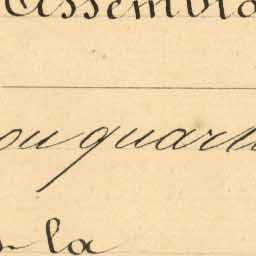 Assembla
ou quart
la